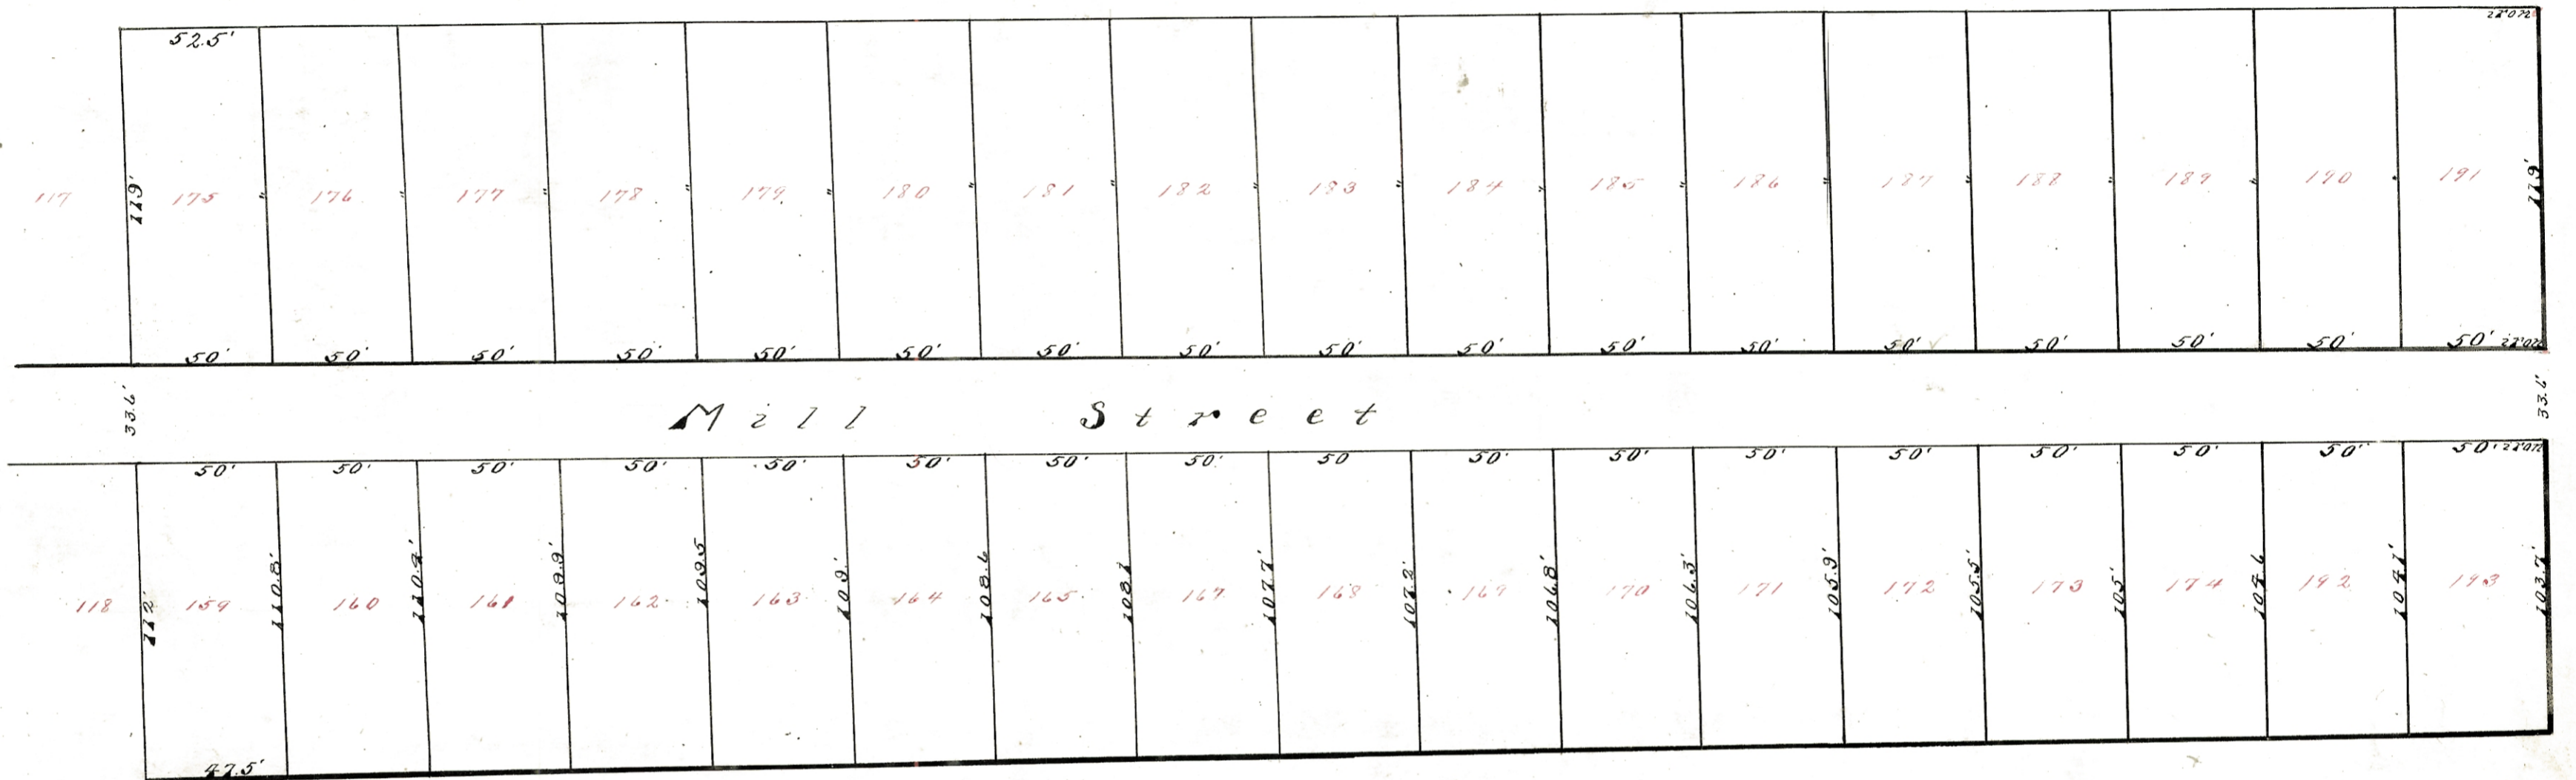 52.5'
117 119' 175 " 176 " 177 " 178 " 179 " 180 " 181 " 182 " 183 " 184 " 185 " 186 " 187 " 188 " 189 " 190 " 191 119'
50' 50' 50' 50' 50' 50' 50' 50' 50' 50' 50' 50' 50' 50' 50' 50' 50'
33.6' Mill Street 33.6'
50' 50' 50' 50' 50' 50' 50' 50' 50 50' 50' 50' 50' 50' 50' 50' 50'
118 112' 159 110.8' 160 110.4' 161 109.9' 162 109.5 163 109' 164 108.6 165 108.1 167 107.7' 168 107.2' 169 106.8' 170 106.3' 171 105.9' 172 105.5' 173 105' 174 104.6 192 104.1' 193 103.7'
47.5'